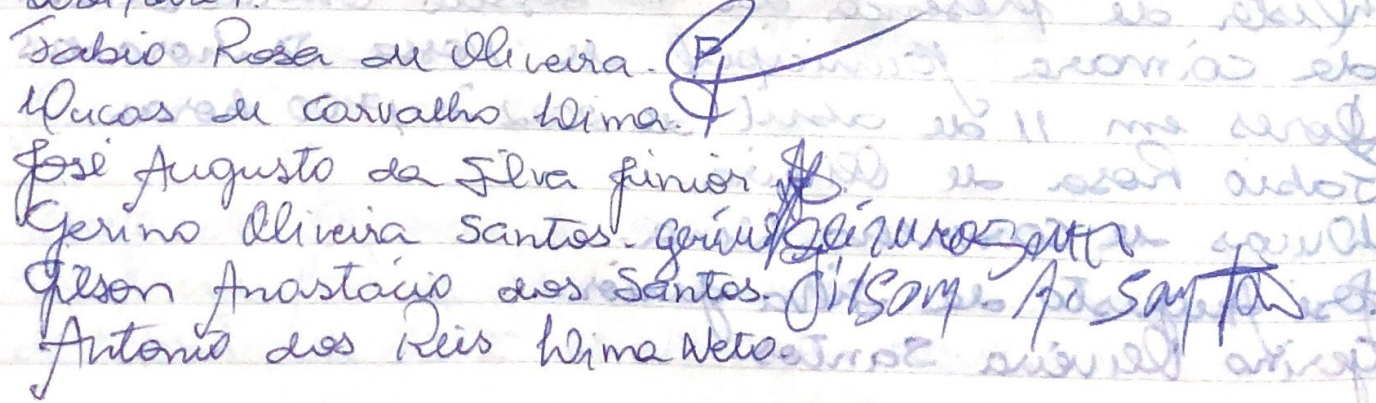 Fabio Rosa de Oliveira.
Lucas de Carvalho Lima.
José Augusto da Silva Júnior
Gerino Oliveira Santos.
Gilson Anastácio dos Santos. Gilson A. Santos
Antonio dos Reis Lima Neto.